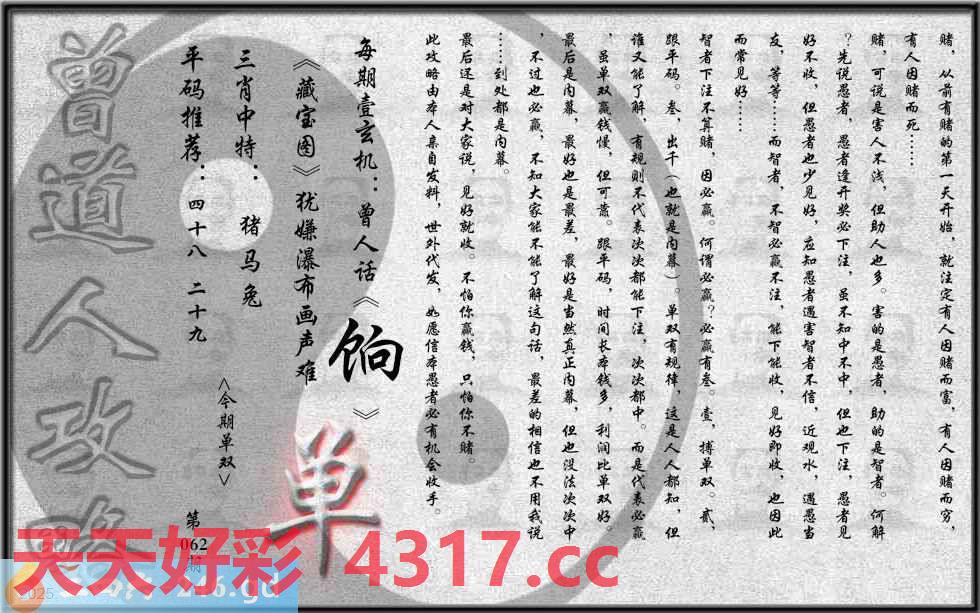 赌，从前有赌的第一天开始，就注定有人因赌而富，有人因赌而穷，
有人因赌而死……
赌，可说是害人不浅，但助人也多。害的是愚者，助的是智者。何解
？先说愚者，愚者逢开奖必下注，虽不知中不中，但也下注，愚者见
好不收，但愚者也少见好，应知愚者遇害智者不信，近观水，遇愚当
友，等等……而智者，不智必赢不注，能下能收，见好即收，也因此
而常见好……
智者下注不算赌，因必赢。何谓必赢？必赢有叁。壹，搏单双。贰，
跟平码。叁，出千（也就是内幕）。单双有规律，这是人人都知，但
谁又能了解，有规则不代表次次都能下注，次次都中。而是代表必赢
，虽单双赢钱慢，但可靠。跟平码，时间长本钱多，利润比单双好。
最后是内幕，最好也是最差，最好是当然真正内幕，但也没法次次中
，不过也必赢，不知大家能不能了解这句话，最差的相信也不用我说
……到处都是内幕。
最后还是对大家说，见好就收。不怕你赢钱，只怕你不赌。
此攻略由本人亲自发料，世外代发，如愿信本愚者必有机会收手。
每期壹玄机：曾人话《饷》
《藏宝图》犹嫌瀑布画声难
三肖中特：猪马兔
平码推荐：四十八 二十九
<今期单双>
单
第
062
期
曾道人攻略
天天好彩 4317.cc
2025
246.gd